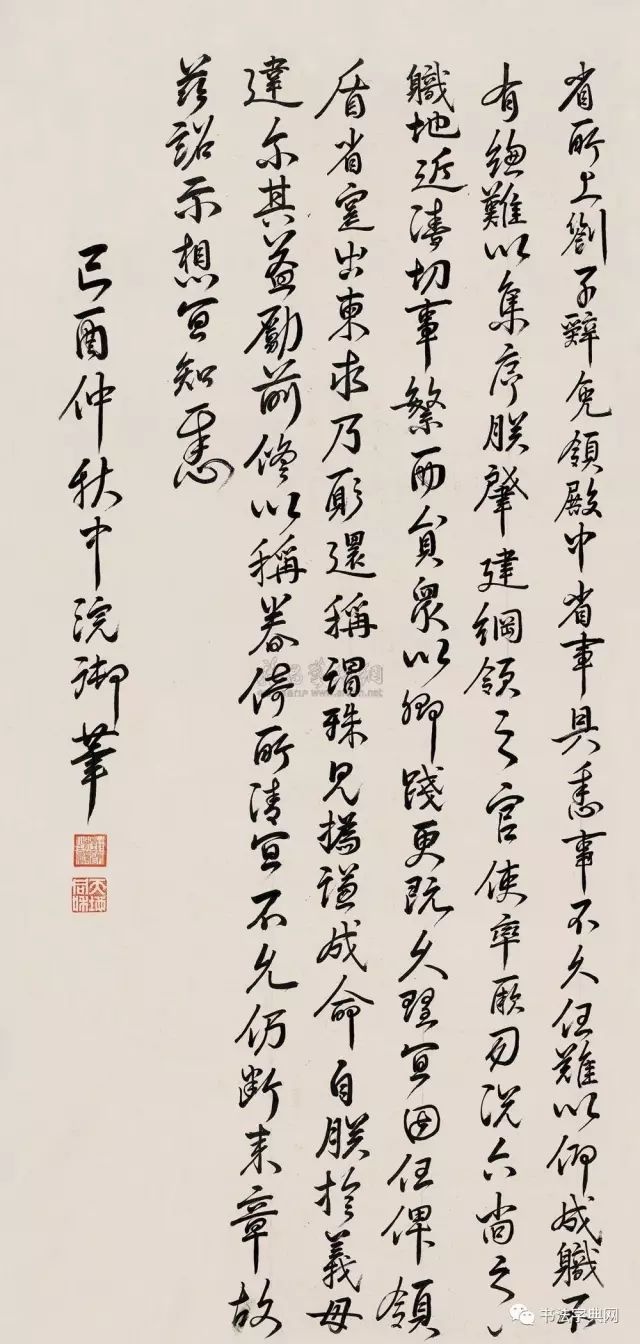 省所上劄子辭免領殿中省事具悉事不久任難以仰成職不
有總難以集序朕肇建綱領之官使率厥司況六尚之
職地近清切事繁而員衆以卿踐更既久理宜因任俾領
盾省寔出柬求乃願還稱謂殊見撝謙成命自朕於義毋
違尔其益勵前脩以稱眷倚所請宜不允仍斷來章故
茲詔示想宜知悉
己酉仲秋中浣御筆
书法字典网